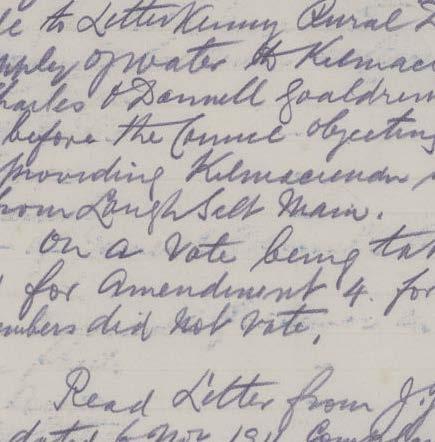 le to Letterkenny Rural D
pply of water to Kilmac
harles O Donnell Goaldrum
before the Council objecting
providing Kilmacrenan
rom Lough Salt Main.
On a vote being tak
for Amendment 4 for
embers did not vote.
Read Letter from J.
dated 6 Nov 191